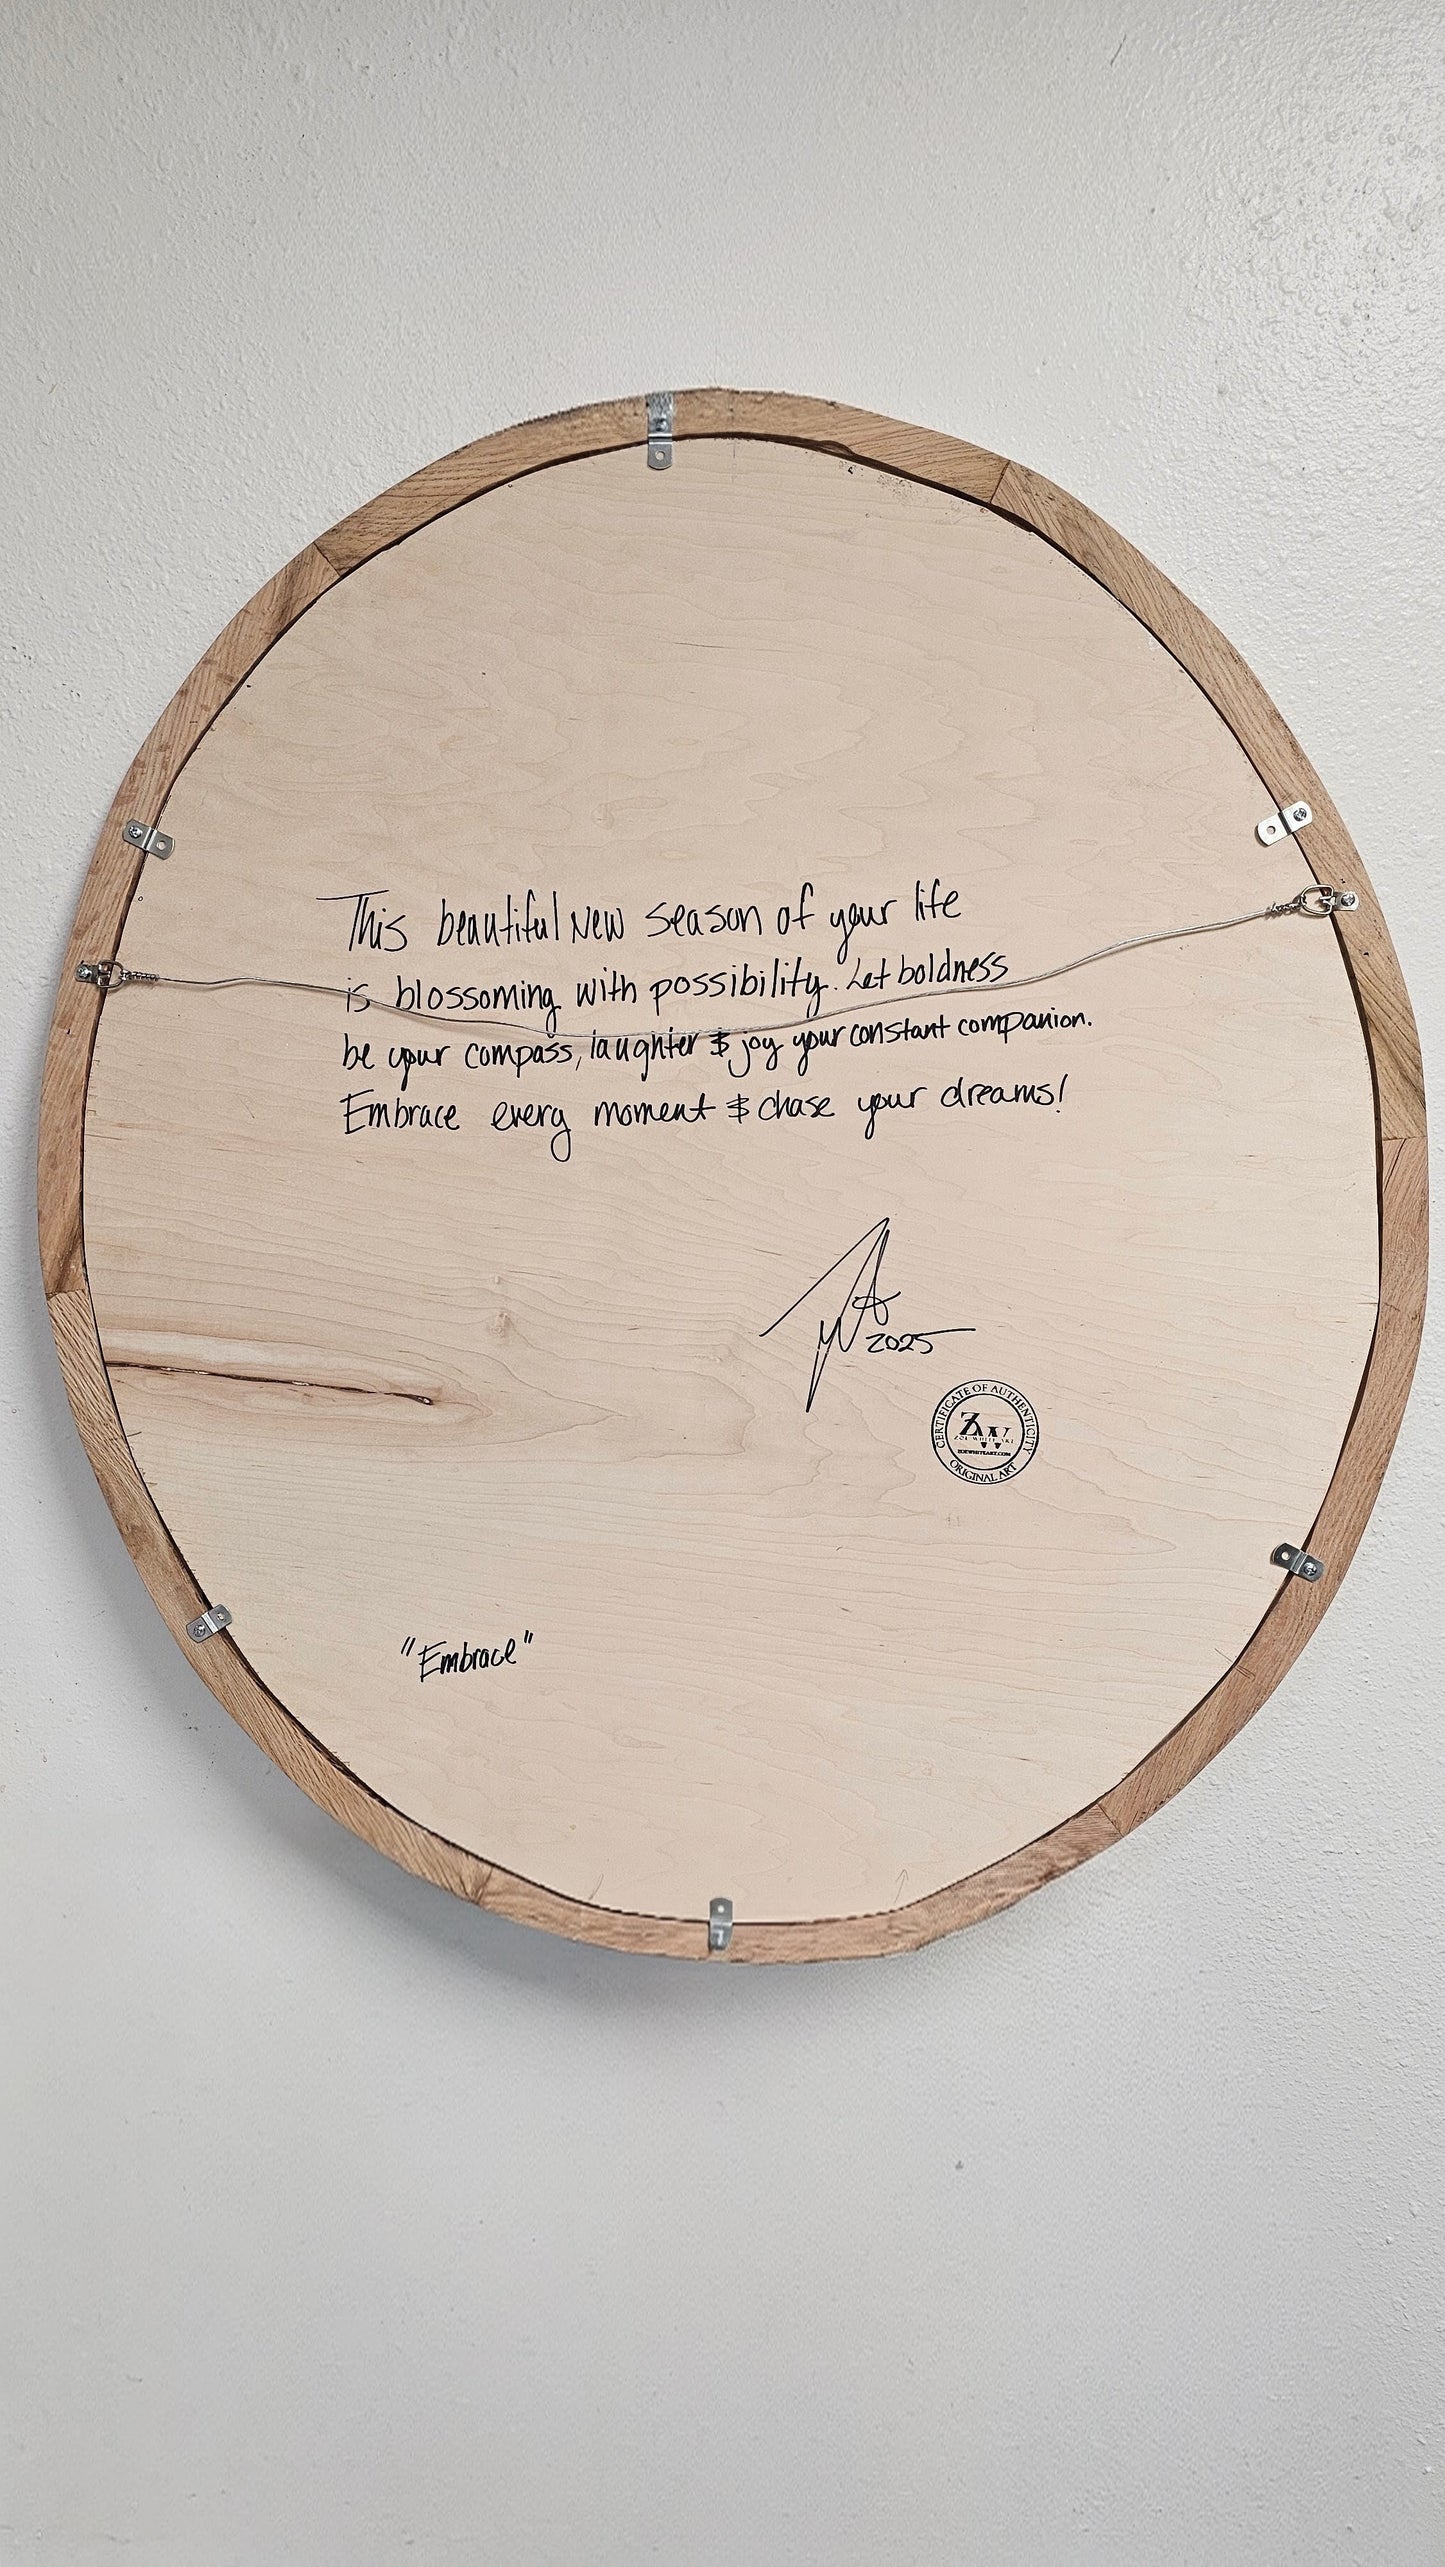 This beautiful New season of your life
is blossoming with possibility. Let boldness
be your compass, laughter & joy your constant companion.
Embrace every moment & chase your dreams!
2025
CERTIFICATE OF AUTHENTICITY
ZW
ZOE WHITE ART
ZOEWHITEART.COM
ORIGINAL ART
"Embrace"